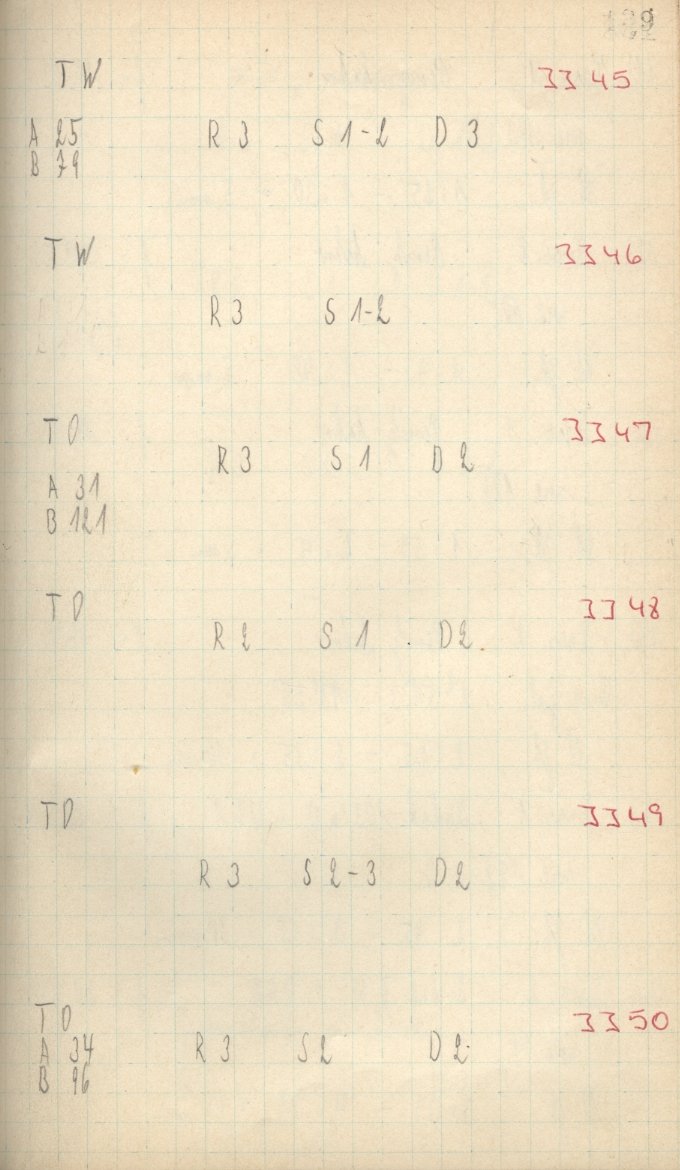 TW 3345
A 25 R 3 S 1-2 D 3
B 79
TW 3346
R 3 S 1-2
TD 3347
R 3 S 1 D 2
A 31
B 121
TD 3348
R 2 S 1 D 2
TD 3349
R 3 S 2-3 D 2
TD 3350
A 34 R 3 S 2 D 2
B 96